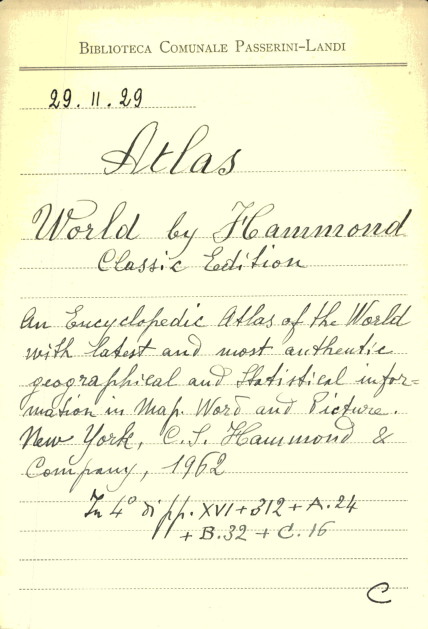 Biblioteca Comunale Passerini-Landi
29. II. 29
Atlas
World by Hammond
Classic Edition
An Encyclopedic Atlas of the World
with latest and most authentic
geographical and Statistical infor=
mation in Map. Word and Picture.
New York, C. S. Hammond &
Company, 1962
In 4° di pp. XVI + 312 + A. 24
+ B. 32 + C. 16
C